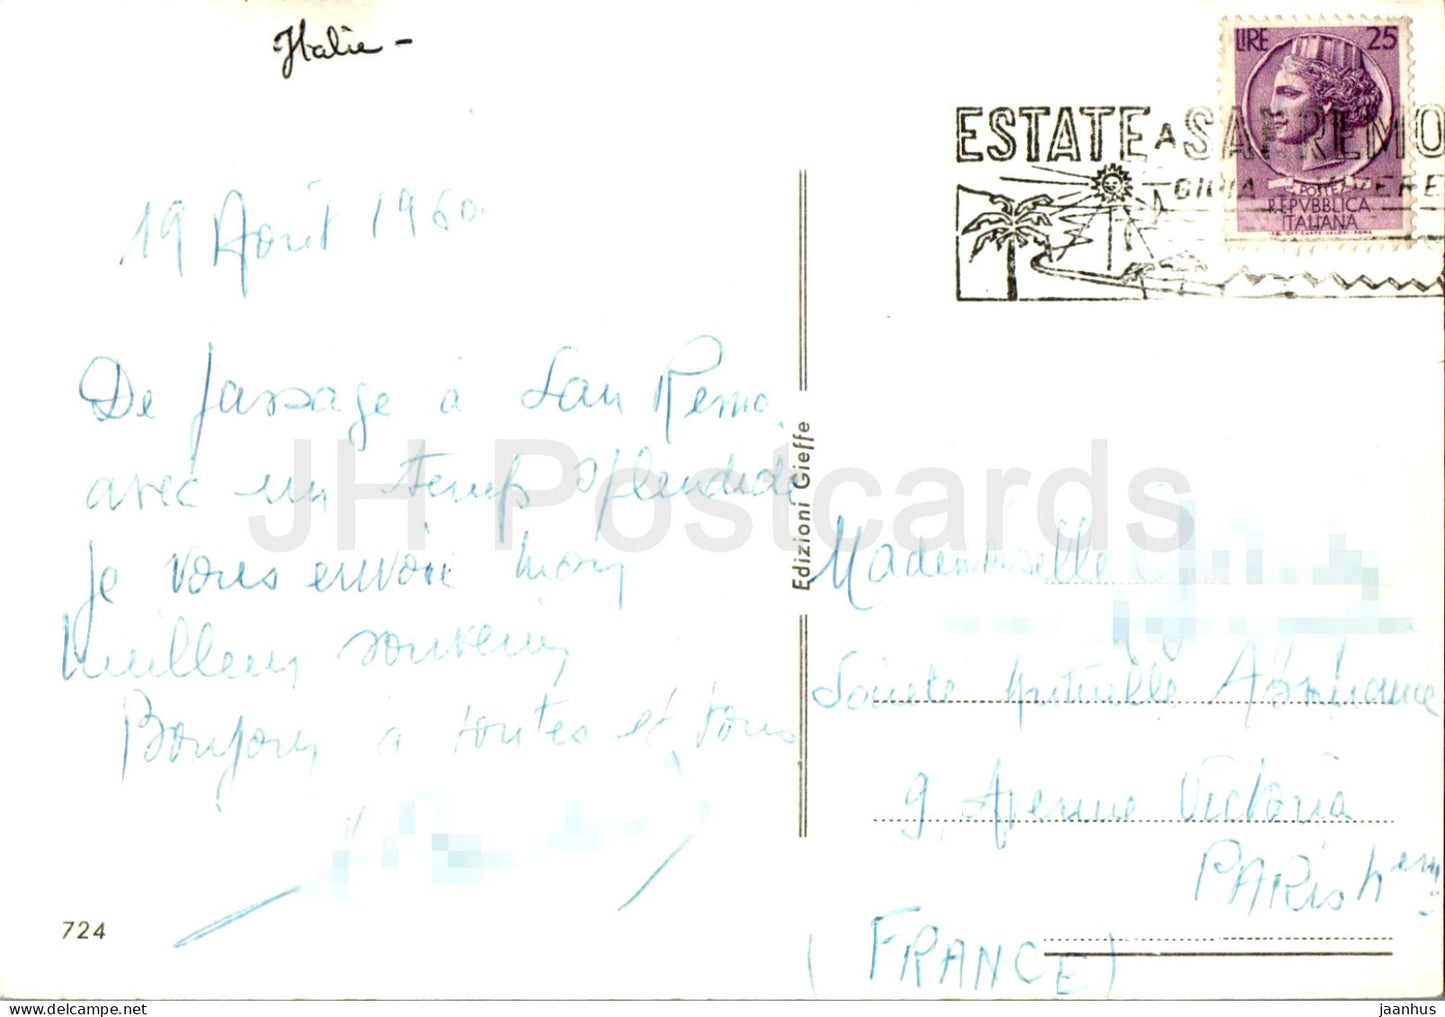 Italie -
LIRE 25
ESTATE A SANREMO
POSTE
REPVBBLICA
ITALIANA
19 Août 1960
De passage à San Remo
avec un temps splendide
je vous envoie mon
meilleur souvenir
Bonjour à toutes et tous
Edizioni Gieffe
Mademoiselle
Société Mutuelle Assurance
9, Avenue Victoria
PARIS
(FRANCE)
724
JH Postcards
www.delcampe.net
jaanhus